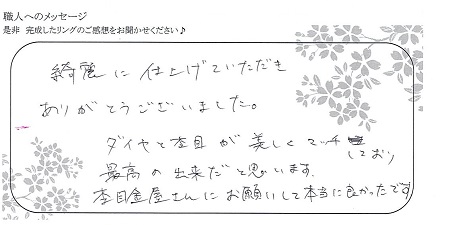 職人へのメッセージ
是非 完成したリングのご感想をお聞かせください♪
綺麗に仕上げていただき
ありがとうございました。
ダイヤと杢目が美しくマッチしており
最高の出来だと思います。
杢目金屋さんにお願いして本当に良かったです